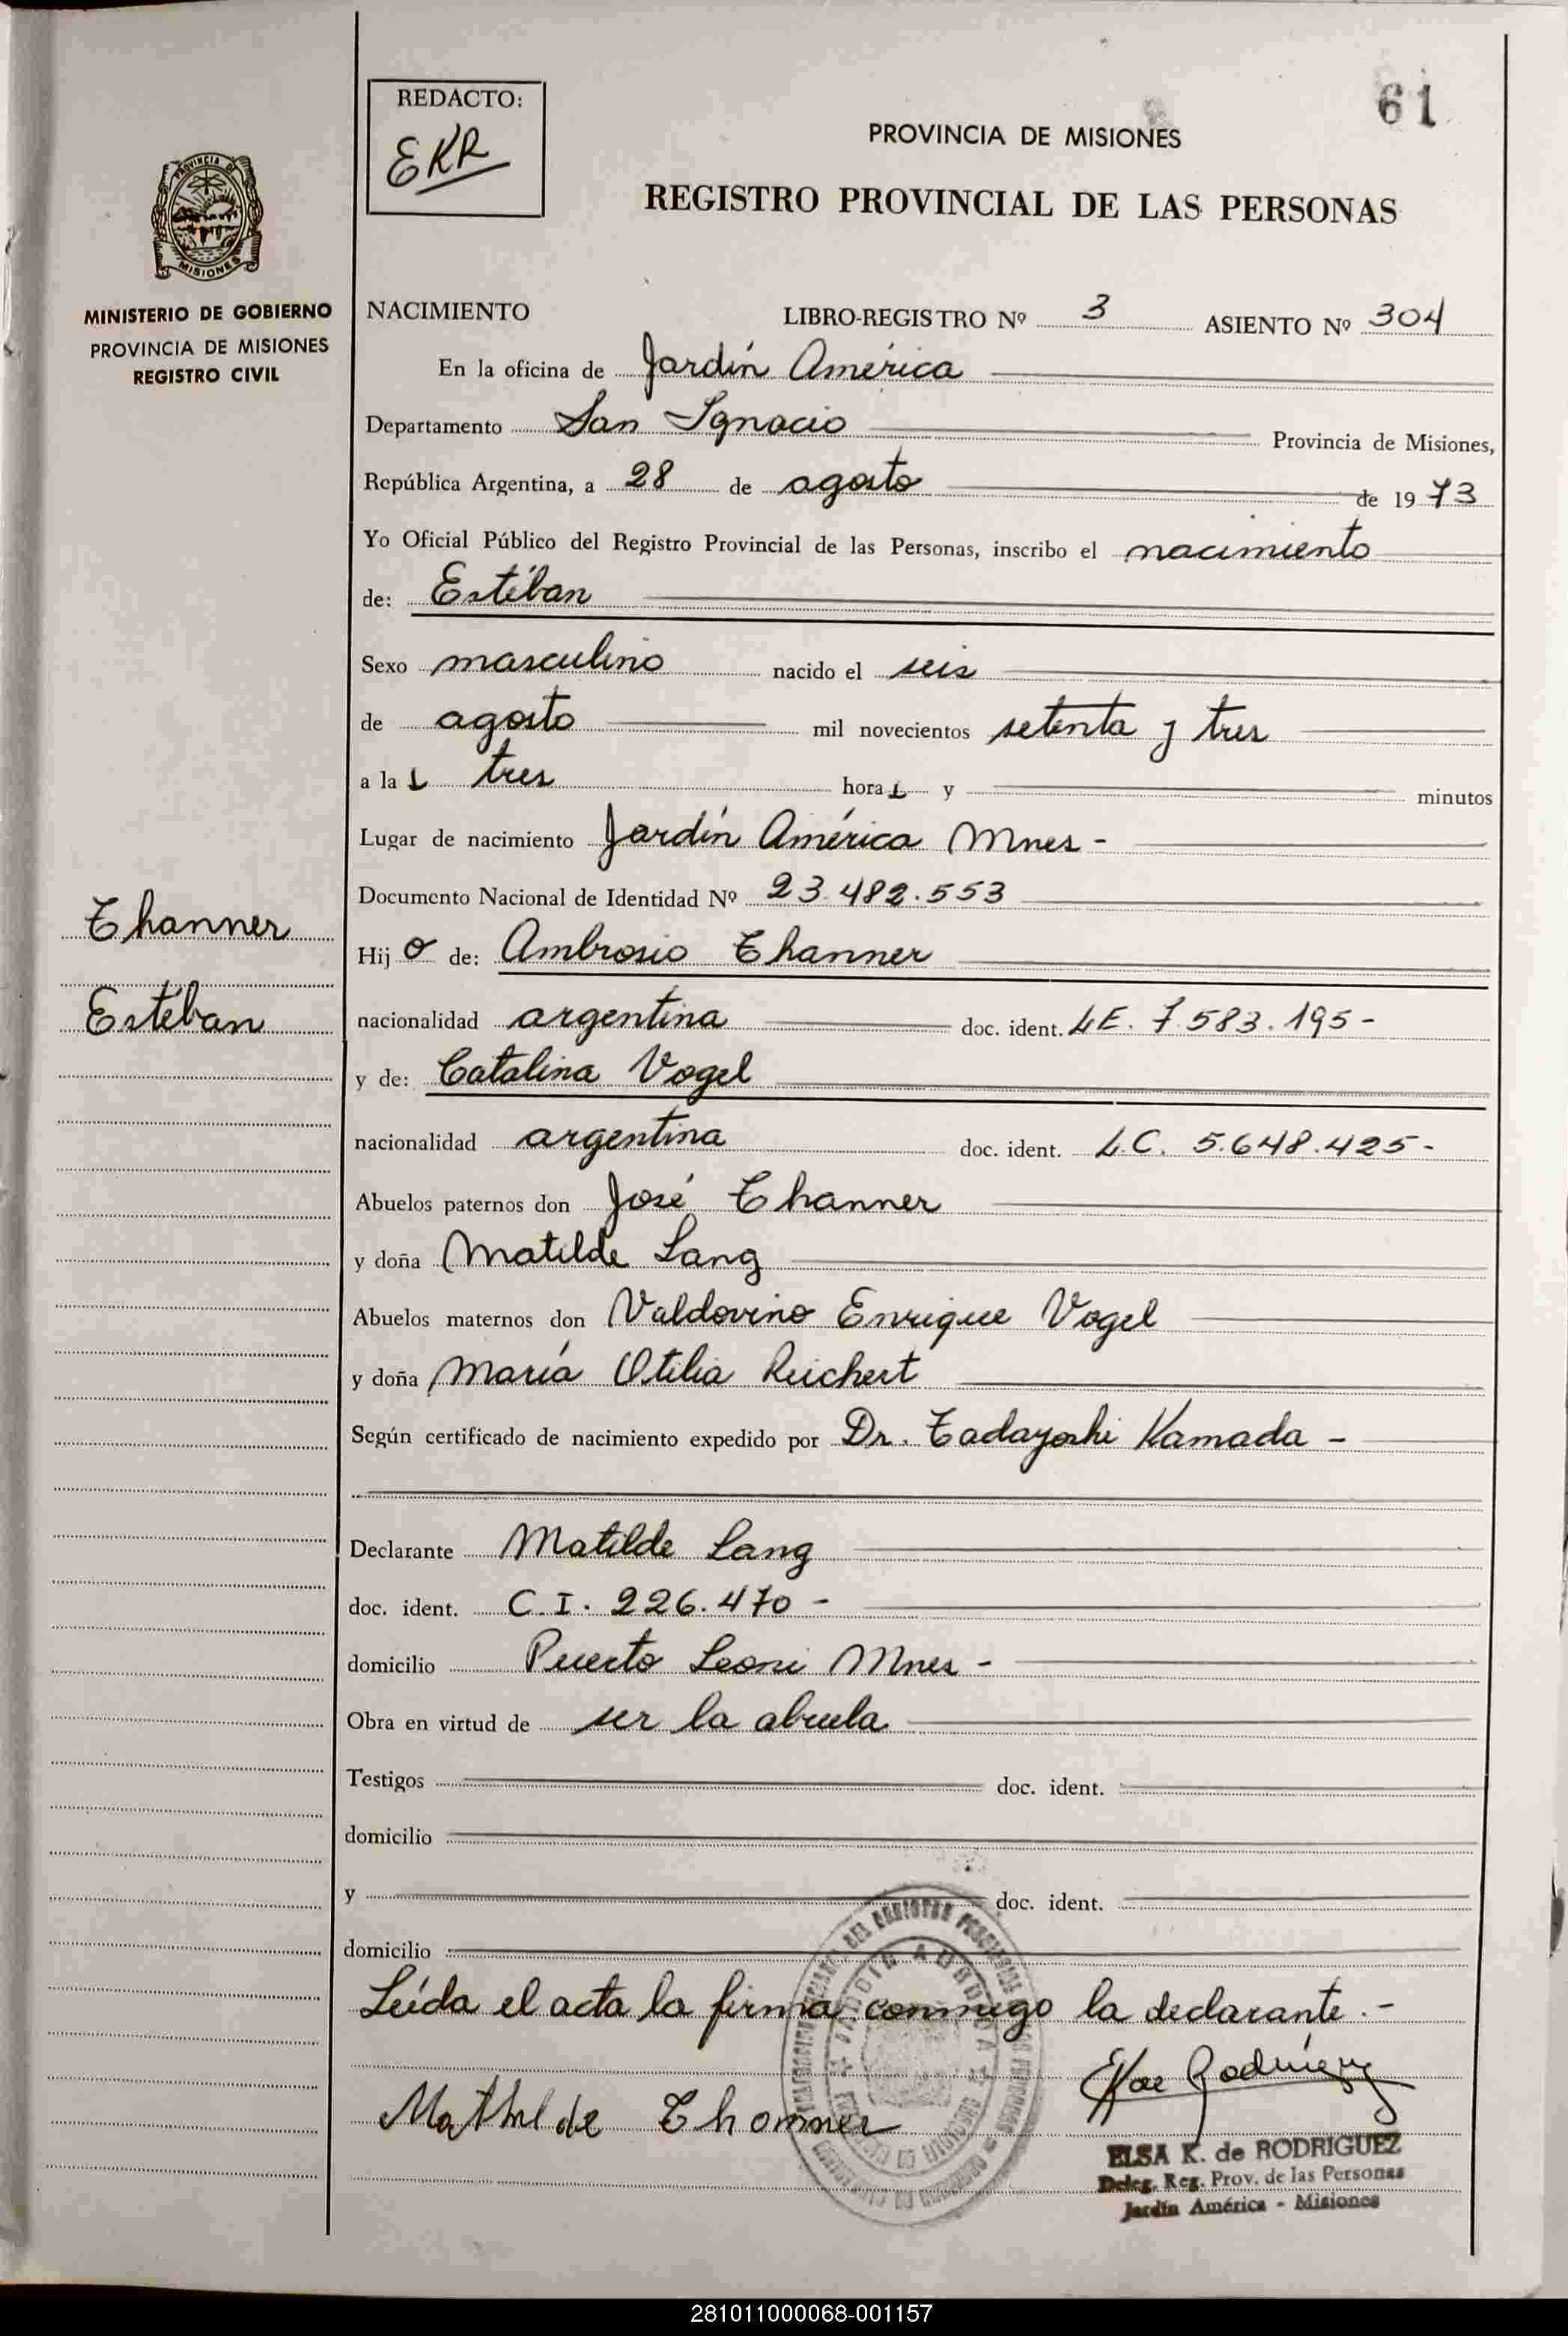 61
REDACTO:
EKR
PROVINCIA DE MISIONES
REGISTRO PROVINCIAL DE LAS PERSONAS
PROVINCIA DE
MISIONES
MINISTERIO DE GOBIERNO
PROVINCIA DE MISIONES
REGISTRO CIVIL
NACIMIENTO LIBRO-REGISTRO Nº 3 ASIENTO Nº 304
En la oficina de Jardín América
Departamento San Ignacio Provincia de Misiones,
República Argentina, a 28 de agosto de 1973
Yo Oficial Público del Registro Provincial de las Personas, inscribo el nacimiento
de: Estéban
Sexo masculino nacido el seis
de agosto mil novecientos setenta y tres
a las tres horas y minutos
Lugar de nacimiento Jardín América Mnes -
Documento Nacional de Identidad Nº 23.482.553
Thanner
Estéban
Hijo de: Ambrosio Thanner
nacionalidad argentina doc. ident. LE. 7.583.195-
y de: Catalina Vogel
nacionalidad argentina doc. ident. L.C. 5.648.425-
Abuelos paternos don José Thanner
y doña Matilde Lang
Abuelos maternos don Valdovino Enrique Vogel
y doña María Otilia Reichert
Según certificado de nacimiento expedido por Dr. Tadayoshi Kamada -
Declarante Matilde Lang
doc. ident. C.I. 226.470 -
domicilio Puerto Leoni Mnes -
Obra en virtud de ser la abuela
Testigos doc. ident.
domicilio
y doc. ident.
domicilio
Leída el acta la firma conmigo la declarante.-
Mathilde Thanner
ELSA K. de RODRIGUEZ
Deleg. Reg. Prov. de las Personas
Jardín América - Misiones
281011000068-001157